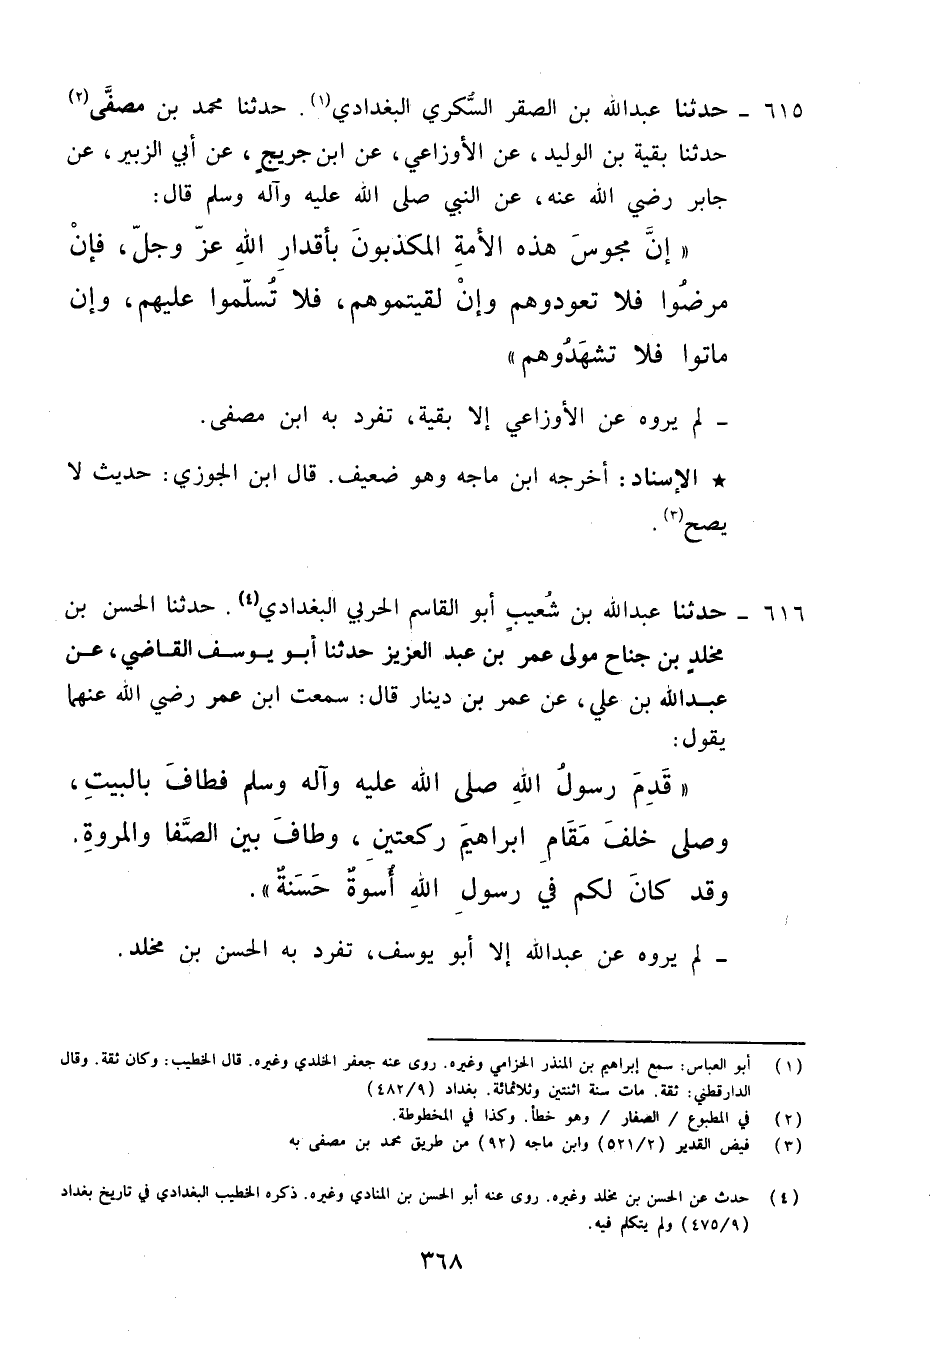 ٦١٥ ـ حدثنا عبدالله بن الصقر السُّكري البغدادي(١). حدثنا محمد بن مصفَّى(٢)
حدثنا بقية بن الوليد، عن الأوزاعي، عن ابن جريجٍ، عن أبي الزبير، عن
جابر رضي الله عنه، عن النبي صلى الله عليه وآله وسلم قال:
« إنَّ مجوسَ هذه الأمةِ المكذبونَ بأقدارِ اللهِ عزّ وجلّ، فإنْ
مرضُوا فلا تعودوهم وإنْ لقيتموهم، فلا تُسلّموا عليهم، وإن
ماتوا فلا تشهَدُوهم»
ـ لم يروه عن الأوزاعي إلا بقية، تفرد به ابن مصفى.
★ الإسناد: أخرجه ابن ماجه وهو ضعيف. قال ابن الجوزي: حديث لا
يصح(٣).
٦١٦ ـ حدثنا عبدالله بن شُعيبٍ أبو القاسم الحربي البغدادي(٤). حدثنا الحسن بن
مخلدٍ بن جناح مولى عمر بن عبد العزيز حدثنا أبو يوسف القاضي، عن
عبدالله بن علي، عن عمر بن دينار قال: سمعت ابن عمر رضي الله عنهما
يقول:
« قَدِمَ رسولُ اللهِ صلى الله عليه وآله وسلم فطافَ بالبيتِ،
وصلى خلفَ مَقَامِ ابراهيمَ ركعتينِ، وطافَ بين الصَّفا والمروةِ.
وقد كانَ لكم في رسولِ اللهِ أُسوةٌ حَسَنةٌ».
ـ لم يروه عن عبدالله إلا أبو يوسف، تفرد به الحسن بن مخلد.
(١) أبو العباس: سمع إبراهيم بن المنذر الحزامي وغيره. روى عنه جعفر الخلدي وغيره. قال الخطيب: وكان ثقة. وقال
الدارقطني: ثقة. مات سنة اثنتين وثلاثمائة. بغداد (٤٨٢/٩)
(٢) في المطبوع / الصفار / وهو خطأ. وكذا في المخطوطة.
(٣) فيض القدير (٥٢١/٢) وابن ماجه (٩٢) من طريق محمد بن مصفى به
(٤) حدث عن الحسن بن مخلد وغيره. روى عنه أبو الحسن بن المنادي وغيره. ذكره الخطيب البغدادي في تاريخ بغداد
(٤٧٥/٩) ولم يتكلم فيه.
٣٦٨